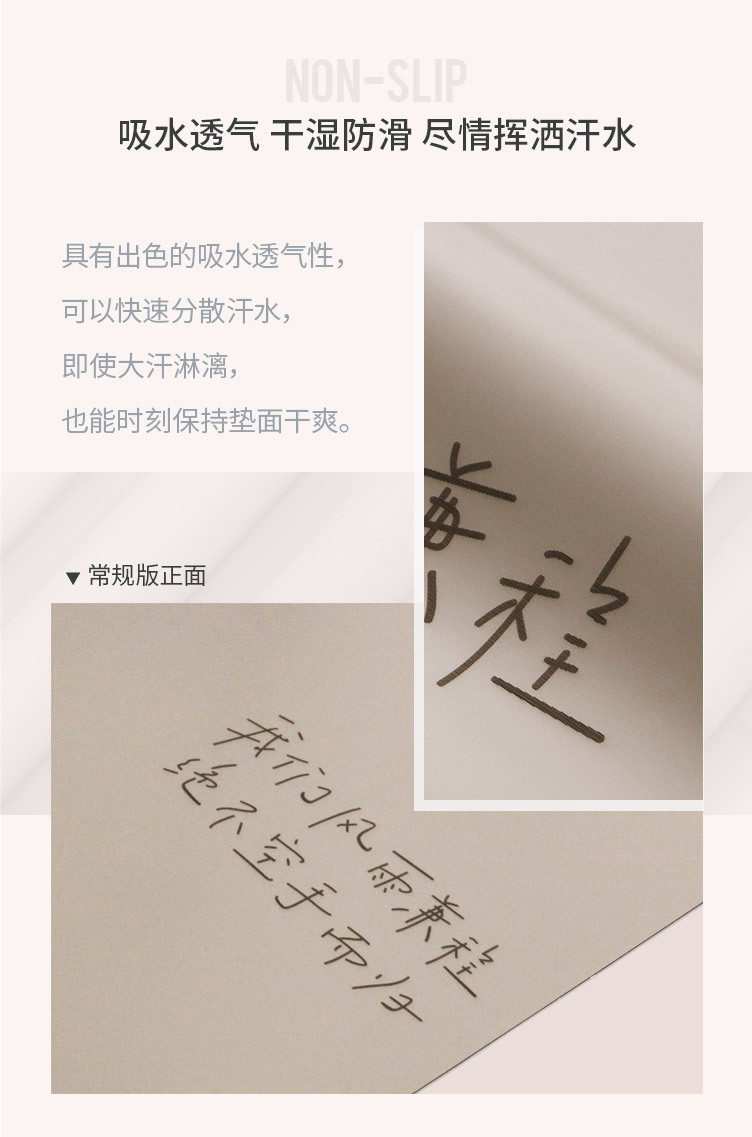 NON-SLIP
吸水透气 干湿防滑 尽情挥洒汗水
具有出色的吸水透气性，
可以快速分散汗水，
即使大汗淋漓，
也能时刻保持垫面干爽。
兼程
▼ 常规版正面
我们风雨兼程
绝不空手而归